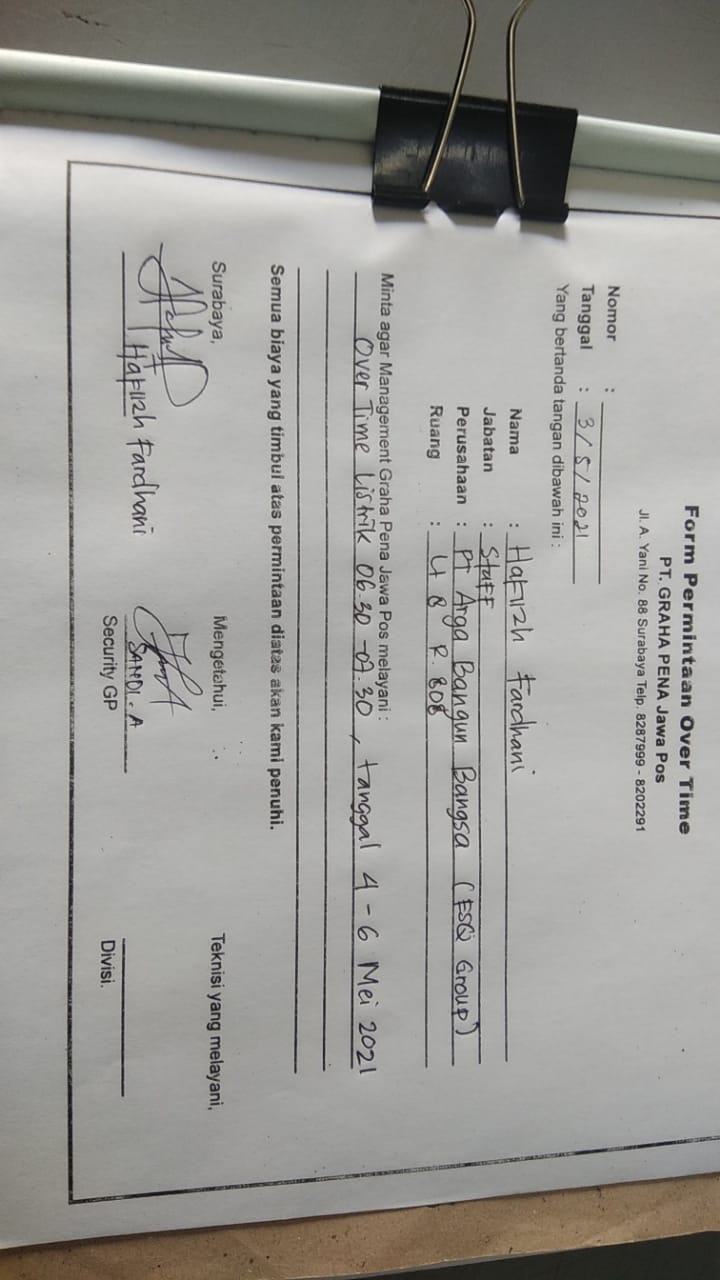 Form Permintaan Over Time
PT. GRAHA PENA Jawa Pos
Jl. A. Yani No. 88 Surabaya Telp. 8287999 - 8202291
Nomor :
Tanggal : 3/5/2021
Yang bertanda tangan dibawah ini :
Nama : Hafizh Fardhani
Jabatan : Staff
Perusahaan : PT Arga Bangun Bangsa (ESQ Group)
Ruang : Lt 8 R. 808
Minta agar Management Graha Pena Jawa Pos melayani :
Over Time Listrik 06.30 - 07.30, tanggal 4 - 6 Mei 2021
Semua biaya yang timbul atas permintaan diatas akan kami penuhi.
Surabaya, Mengetahui, Teknisi yang melayani,
Hafizh Fardhani SANDI. A
Security GP Divisi.